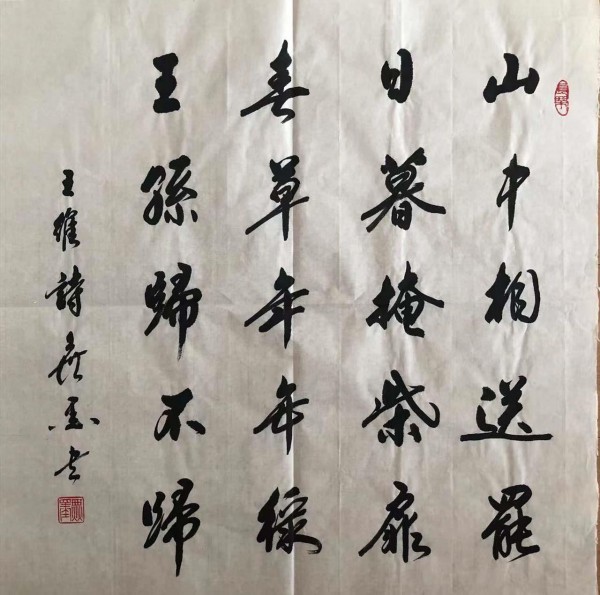 山中相送罷
日暮掩柴扉
春草年年綠
王孫歸不歸
王維詩 墨书